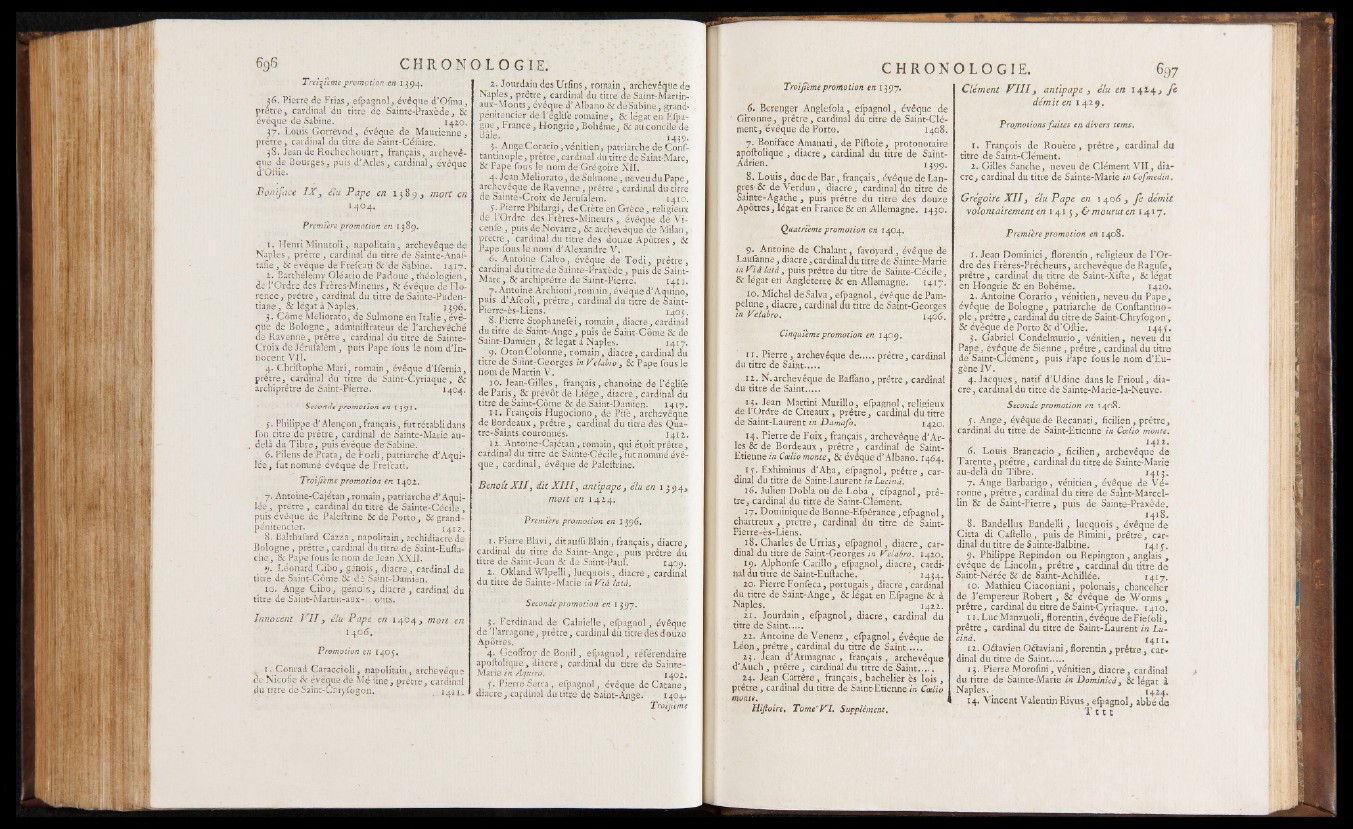 696 CHRONOLOGIE.
Treizième promotion en 1394.
36. Pierre de Frias, eſpagnol, évêque d'Oſma,
prêtre, cardinal du titre de Sainte-Praxède, &
évêque de Sabine. 1420.
37. Louis Gorrevod, évêque de Maurienne,
prêtre, cardinal du titre de Saint-Céſaire.
38. Jean de Rochechouart, français, archevê-
que de Bourges, puis d'Arles, cardinal, évêque
d'Oſtie.
Boniface IX, élu Pape en 1389, mort en
1404.
Première promotion en 1389.
1. Henri Minutoli, napolitain, archevêque de
Naples, prêtre, cardinal du titre de Sainte-Anaſ-
taſie, & évêque de Freſcati & de Sabine. 1417.
2. Barthélemy Oléario de Padoue, théologien,
de l'Ordre des Frères-Mineurs, & évêque de Flo-
rence, prêtre, cardinal du titre de Sainte-Puden-
tiane, & légat à Naples. 1396.
3. Côme Meliorato, de Sulmone en Italie, évê-
que de Bologne, adminiſtrateur de l'archevêché
de Ravenne, prêtre, cardinal du titre de Sainte-
Croix de Jéruſalem, puis Pape ſous le nom d'In-
nocent VII.
4. Chriſtophe Mari, romain, évêque d'Iſernia,
prêtre, cardinal du titre de Saint-Cyriaque, &
archiprêtre de Saint-Pierre. 1404.
Seconde promotion en 1391.
5. Philippe d'Alençon, français, fut rétabli dans
ſon titre de prêtre, cardinal de Sainte-Marie au-
delà du Tibre, puis évêque de Sabine.
6. Pilens de Prata, de Forli, patriarche d'Aqui-
lée, fut nommé évêque de Freſcati.
Troiſième promotion en 1402.
7. Antoine-Cajétan, romain, patriarche d'Aqui-
lée, prêtre, cardinal du titre de Sainte-Cécile,
puis évêque de Paleſtrine & de Porto, & grand-
pénitencier. 1412.
8. Balthaſard Cazza, napolitain, archidiacre de
Bologne, prêtre, cardinal du titre de Saint-Euſta-
che, & Pape ſous le nom de Jean XXII.
9. Léonard Cibo, génois, diacre, cardinal du
titre de Saint-Côme & de Saint-Damien.
10. Ange Cibo, génois, diacre, cardinal du
titre de Saint-Martin-aux-Monts.
Innocent VII, élu Pape en 1404, mort en
1406.
Promotion en 1405.
1. Conrad Caraccioli, napolitain, archevêque
de Nicoſie & évêque de prêtre, cardinal
du titre de Saint-Chryſogon. 1411.
2. Jourdain des Urſins, romain, archevêque de
Naples, prêtre, cardinal du titre de Saint-Martin-
aux-Monts, évêque d'Albano & de Sabine, grand-
pénitencier de l'égliſe romaine, & légat en Eſpa-
gne, France, Hongrie, Bohême, & au concile de
Bâle. 1439.
3. Ange Corario, vénitien, patriarche de Conſ-
tantinople, prêtre, cardinal du titre de Saint-Marc,
& Pape ſous le nom de Grégoire XII.
4. Jean Meliorato, de Sulmone, neveu du Pape,
archevêque de Ravenne, prêtre, cardinal du titre
de Sainte-Croix de Jeruſalem. 1410.
5. Pierre Philargi, de Crète en Grèce, religieux
de l'Ordre des Frères-Mineurs, évêque de Vi-
cenſe, puis de Novarre, & archevêque de Milan,
prêtre, cardinal du titre des douze Apôtres, &
Pape ſous le nom d'Alexandre V.
6. Antoine Calvo, évêque de Todi, prêtre,
cardinal du titre de Sainte-Praxède, puis de Saint-
Marc, & archiprêtre de Saint-Pierre. 1411.
7. Antoine Archioni, romain, évêque d'Aquino,
puis d'Aſcoli, prêtre, cardinal du titre de Saint-
Pierre-ès-Liens. 1405.
8. Pierre Stophaneſei, romain, diacre, cardinal
du titre de Saint-Ange, puis de Saint-Côme & de
Saint-Damien, & légat à Naples. 1417.
9. Oton Colonne, romain, diacre, cardinal du
titre de Saint-Georges in Velabro, & Pape ſous le
nom de Martin V.
10. Jean-Gilles, français, chanoine de l'égliſe
de Paris, & prévôt de Liége, diacre, cardinal du
titre de Saint-Côme & de Saint-Damien. 1417.
11. François Hugociono, de Piſe, archevêque
de Bordeaux, prêtre, cardinal du titre des Qua-
tre-Saints couronnés. 1412.
12. Antoine-Cajétan, romain, qui étoit prêtre,
cardinal du titre de Sainte-Cécile, fut nommé évê-
que, cardinal, évêque de Paleſtrine.
Benoît XII, dit XIII, antipape, élu en 1394,
mort en 1424.
Première promotion en 1396.
1. Pierre Blavi, dit auſſi Blain, français, diacre,
cardinal du titre de Saint-Ange, puis prêtre du
titre de Saint-Jean & de Saint-Paul. 1409.
2. Okland Wlpelli, lucquois, diacre, cardinal
du titre de Sainte-Marie in Viâ latâ.
Seconde promotion en 1397.
3. Ferdinand de Calnielle, eſpagnol, évêque
de Tarragone, prêtre, cardinal du titre des douze
Apôtres.
4. Geoffroy de Bonil, eſpagnol, référendaire
apoſtolique, diacre, cardinal du titre de Sainte-
Marie in Aquiro. 1402.
5. Pierre Serra, eſpagnol, évêque de Catane,
diacre, cardinal du titre de Saint-Ange. 1404.
Troiſième
CHRONOLOGIE. 697
Troiſième promotion en 1397.
6. Berenger Angleſola, eſpagnol, évêque de
Gironne, prêtre, cardinal du titre de Saint-Clé-
ment, évêque de Porto. 1408.
7. Boniface Amanati, de Piſtoie, protonotaire
apoſtolique, diacre, cardinal du titre de Saint-
Adrien. 1399.
8. Louis, duc de Bar, français, évêque de Lan-
gres & de Verdun, diacre, cardinal du titre de
Sainte-Agathe, puis prêtre du titre des douze
Apôtres, légat en France & en Allemagne. 1430.
Quatrième promotion en 1404.
9. Antoine de Chalant, ſavoyard, évêque de
Lauſanne, diacre, cardinal du titre de Sainte-Marie
in Viâ latâ, puis prêtre du titre de Sainte-Cécile,
& légat en Angleterre & en Allemagne. 1417.
10. Michel de Salva, eſpagnol, évêque de Pam-
pelune, diacre, cardinal du titre de Saint-Georges
in Velabro. 1406.
Cinquième promotion en 1409.
11. Pierre, archevêque de..... prêtre, cardinal
du titre de Saint.....
12. N. archevêque de Baſſano, prêtre, cardinal
du titre de Saint.....
13. Jean Martini Murillo, eſpagnol, religieux
de l'Ordre de Citeaux, prêtre, cardinal du titre
de Saint-Laurent in Damaſo. 1420.
14. Pierre de Foix, français, archevêque d'Ar-
les & de Bordeaux, prêtre, cardinal de Saint-
Etienne in Cœlio monte, & évêque d'Albano. 1464.
15. Exhiminus d'Aha, eſpagnol, prêtre, car-
dinal du titre de Saint-Laurent in Lucinâ.
16. Julien Dobla ou de Loba, eſpagnol, prê-
tre, cardinal du titre de Saint-Clément.
17. Dominique de Bonne-Eſpérance, eſpagnol,
chartreux, prêtre, cardinal du titre de Saint-
Pierre-ès-Liens.
18. Charles de Urrias, eſpagnol, diacre, car-
dinal du titre de Saint-Georges in Velabro. 1420.
19. Alphonſe Carillo, eſpagnol, diacre, cardi-
nal du titre de Saint-Euſtache. 1434.
20. Pierre Fonſeca, portugais, diacre, cardinal
du titre de Saint-Ange, & légat en Eſpagne & à
Naples. 1422.
21. Jourdain, eſpagnol, diacre, cardinal du
titre de Saint.....
22. Antoine de Venenz, eſpagnol, évêque de
Léon, prêtre, cardinal du titre de Saint.....
23. Jean d'Armagnac, français, archevêque
d'Auch, prêtre, cardinal du titre de Saint.....
24. Jean Carrère, français, bachelier ès lois,
prêtre, cardinal du titre de Saint-Etienne in Cœlio
monte.
Hiſtoire. Tome VI. Supplément.
Clément VIII, antipape, élu en 1424, ſe
démit en 1429.
Promotions faites en divers tems.
1. François de Rouère, prêtre, cardinal du
titre de Saint-Clément.
2. Gilles Sanche, neveu de Clément VII, dia-
cre, cardinal du titre de Sainte-Marie in Coſmedin.
Grégoire XII, élu Pape en 1406, ſe démit
volontairement en 1415, & mourut en 1417.
Première promotion en 1408.
1. Jean Dominici, florentin, religieux de l'Or-
dre des Frères-Prêcheurs, archevêque de Raguſe,
prêtre, cardinal du titre de Saint-Xiſte, & légat
en Hongrie & en Bohême. 1420.
2. Antoine Corario, vénitien, neveu du Pape,
évêque de Bologne, patriarche de Conſtantino-
ple, prêtre, cardinal du titre de Saint-Chryſogon,
& évêque de Porto & d'Oſtie. 1445.
3. Gabriel Condelmurio, vénitien, neveu du
Pape, évêque de Sienne, prêtre, cardinal du titre
de Saint-Clément, puis Pape ſous le nom d'Eu-
gène IV.
4. Jacques, natif d'Udine dans le Frioul, dia-
cre, cardinal du titre de Sainte-Marie-la-Neuve.
Seconde promotion en 1408.
5. Ange, évêque de Recanati, ſicilien, prêtre,
cardinal du titre de Saint-Etienne in Cœlio monte.
1412.
6. Louis Brancacio, ſicilien, archevêque de
Tarente, prêtre, cardinal du titre de Sainte-Marie
au-delà du Tibre. 1413.
7. Ange Barbarigo, vénitien, évêque de Vé-
ronne, prêtre, cardinal du titre de Saint-Marcel-
lin & de Saint-Pierre, puis de Sainte-Praxède.
1418.
8. Bandellus Bandelli, lucquois, évêque de
Citta di Caſtello, puis de Rimini, prêtre, car-
dinal du titre de Sainte-Balbine. 1415.
9. Philippe Repindon ou Repington, anglais,
évêque de Lincoln, prêtre, cardinal du titre de
Saint-Nérée & de Saint-Achillée. 1417.
10. Mathieu Ciaconiani, polonais, chancelier
de l'empereur Robert, & évêque de Worms,
prêtre, cardinal du titre de Saint-Cyriaque. 1410.
11. Luc Manzuoli, florentin, évêque de Fieſoli,
prêtre, cardinal du titre de Saint-Laurent in Lu-
cinâ. 1411.
12. Octavien Octaviani, florentin, prêtre, car-
dinal du titre de Saint.....
13. Pierre Moroſini, vénitien, diacre, cardinal
du titre de Sainte-Marie in Dominicâ, & légat à
Naples. 1424.
14. Vincent Valentin Rivus, eſpagnol, abbé de
T t t t